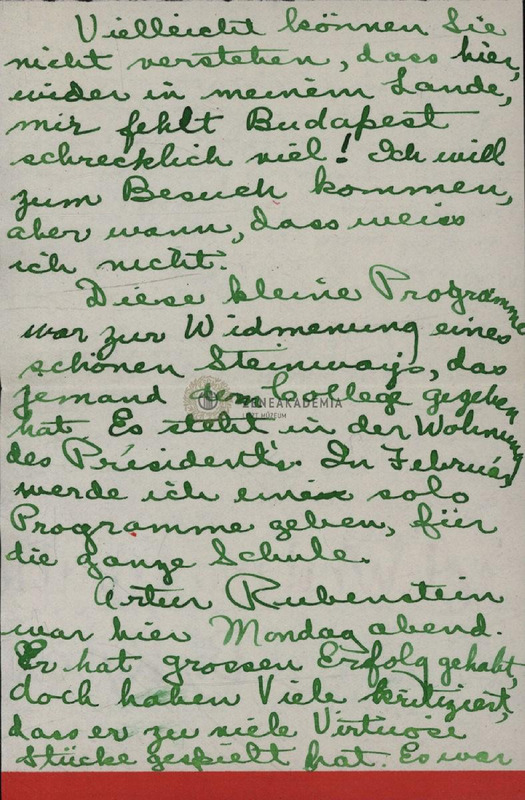 Vielleicht können Sie
nicht verstehen, dass hier,
wider in meinem Lande,
mir fehlt Budapest
schrecklich viel! Ich will
zum Besuch kommen,
aber wann, dass weiss
ich nicht.
Diese kleine Programme
war zur Widmenung eines
schönen Steinways, das
jemand dem College gegeben
hat. Es steht in der Wohnung
des Président's. In Februar,
werde ich eine solo
Programme geben, für
die ganze Schule.
Artur Rubenstein
war hier Mondag abend.
Er hat grossen Erfolg gehabt,
doch haben Viele kritiziert,
dass er zu viele Virtuose
Stücke gespielt hat. Es war
ZENEAKADÉMIA
LISZT MÚZEUM